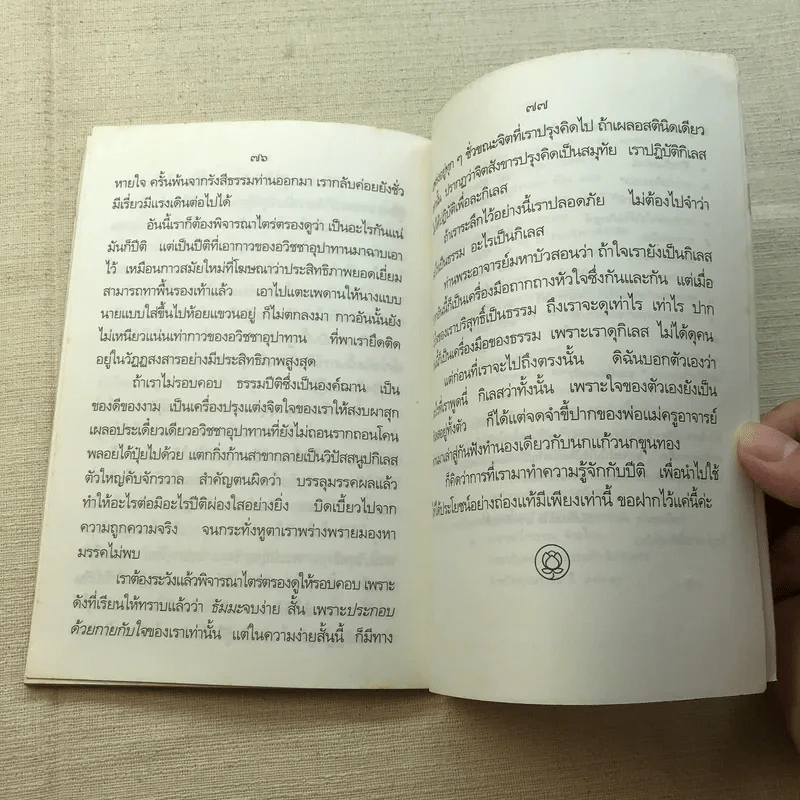 ๗๖
หายใจ ครั้นพ้นจากรังสีธรรมท่านออกมา เรากลับค่อยยังชั่ว
มีเรี่ยวมีแรงเดินต่อไปได้
อันนี้เราก็ต้องพิจารณาไตร่ตรองดูว่า เป็นอะไรกันแน่
มันก็ปีติ แต่เป็นปีติที่เอากาวของอวิชชาอุปาทานมาฉาบเอา
ไว้ เหมือนกาวสมัยใหม่ที่โฆษณาว่าประสิทธิภาพยอดเยี่ยม
สามารถทาพื้นรองเท้าแล้ว เอาไปแตะเพดานให้นางแบบ
นายแบบใส่ขึ้นไปห้อยแขวนอยู่ ก็ไม่ตกลงมา กาวอันนั้นยัง
ไม่เหนียวแน่นเท่ากาวของอวิชชาอุปาทาน ที่พาเรายึดติด
อยู่ในวัฏฏสงสารอย่างมีประสิทธิภาพสูงสุด
ถ้าเราไม่รอบคอบ ธรรมปีติซึ่งเป็นองค์ฌาน เป็น
ของดีของงาม เป็นเครื่องปรุงแต่งจิตใจของเราให้สงบผาสุก
เผลอประเดี๋ยวเดียวอวิชชาอุปาทานที่ยังไม่ถอนรากถอนโคน
พลอยได้ปุ๋ยไปด้วย แตกกิ่งก้านสาขากลายเป็นวิปัสสนูปกิเลส
ตัวใหญ่คับจักรวาล สำคัญตนผิดว่า บรรลุมรรคผลแล้ว
ทำให้อะไรต่อมิอะไรปีติผ่องใสอย่างยิ่ง บิดเบี้ยวไปจาก
ความถูกความจริง จนกระทั่งหูตาเราพร่างพรายมองหา
มรรคไม่พบ
เราต้องระวังแล้วพิจารณาไตร่ตรองดูให้รอบคอบ เพราะ
ดังที่เรียนให้ทราบแล้วว่า ธัมมะจบง่าย สั้น เพราะประกอบ
ด้วยกายกับใจของเราเท่านั้น แต่ในความง่ายสั้นนี้ ก็มีทาง
๗๗
ๆ ชั่วขณะจิตที่เราปรุงคิดไป ถ้าเผลอสตินิดเดียว
ปรากฏว่าจิตสังขารปรุงคิดเป็นสมุทัย เราปฏิบัติกิเลส
ปฏิบัติเพื่อละกิเลส
ถ้าเราระลึกไว้อย่างนี้เราปลอดภัย ไม่ต้องไปจำว่า
เป็นธรรม อะไรเป็นกิเลส
ท่านพระอาจารย์มหาบัวสอนว่า ถ้าใจเรายังเป็นกิเลส
นี้ก็เป็นเครื่องมือถากถางหัวใจซึ่งกันและกัน แต่เมื่อ
ของเราบริสุทธิ์เป็นธรรม ถึงเราจะดุเท่าไร เท่าไร ปาก
เป็นเครื่องมือของธรรม เพราะเราดุกิเลส ไม่ได้ดุคน
แต่ก่อนที่เราจะไปถึงตรงนั้น ดิฉันบอกตัวเองว่า
ที่เราพูดนี่ กิเลสว่าทั้งนั้น เพราะใจของตัวเองยังเป็น
อยู่ทั้งตัว ก็ได้แต่จดจำขี้ปากของพ่อแม่ครูอาจารย์
มาเล่าสู่กันฟังทำนองเดียวกับนกแก้วนกขุนทอง
ก็คิดว่าการที่เรามาทำความรู้จักกับปีติ เพื่อนำไปใช้
ให้ได้ประโยชน์อย่างถ่องแท้มีเพียงเท่านี้ ขอฝากไว้แค่นี้ค่ะ